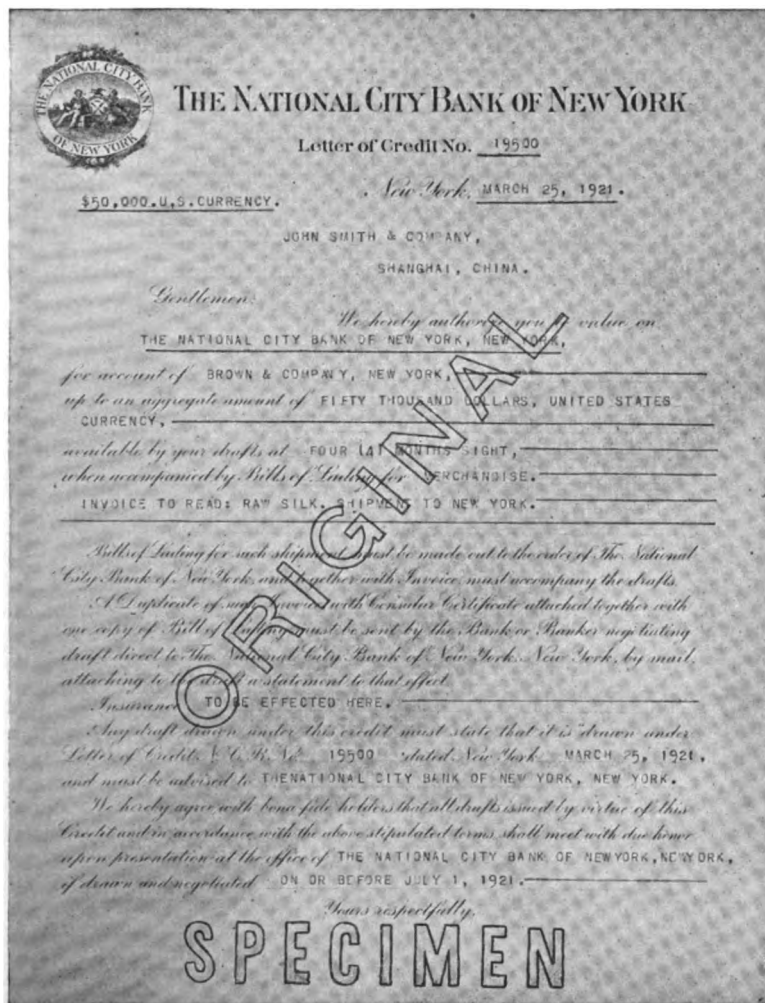 THE NATIONAL CITY BANK
OF NEW YORK
THE NATIONAL CITY BANK OF NEW YORK
Letter of Credit No. 19500
$50,000.U.S.CURRENCY.
New York, MARCH 25, 1921.
JOHN SMITH & COMPANY,
SHANGHAI, CHINA.
Gentlemen:
We hereby authorize you to value on
THE NATIONAL CITY BANK OF NEW YORK, NEW YORK,
for account of BROWN & COMPANY, NEW YORK,
up to an aggregate amount of FIFTY THOUSAND DOLLARS, UNITED STATES
CURRENCY,
available by your drafts at FOUR (4) MONTHS SIGHT,
when accompanied by Bills of Lading for MERCHANDISE.
INVOICE TO READ: RAW SILK. SHIPMENT TO NEW YORK.
Bills of Lading for such shipment must be made out to the order of The National
City Bank of New York, and together with Invoice, must accompany the drafts.
A Duplicate of such Invoice with Consular Certificate attached together with
one copy of Bill of Lading must be sent by the Bank or Banker negotiating
draft direct to The National City Bank of New York, New York, by mail,
attaching to the draft a statement to that effect.
Insurance TO BE EFFECTED HERE.
Any draft drawn under this credit must state that it is "drawn under
Letter of Credit N.C.R. No. 19500 dated New York MARCH 25, 1921,
and must be advised to THENATIONAL CITY BANK OF NEW YORK, NEW YORK.
We hereby agree with bona fide holders that all drafts issued by virtue of this
Credit and in accordance with the above stipulated terms shall meet with due honor
upon presentation at the office of THE NATIONAL CITY BANK OF NEWYORK,NEWYORK,
if drawn and negotiated ON OR BEFORE JULY 1, 1921.
Yours respectfully,
ORIGINAL
SPECIMEN